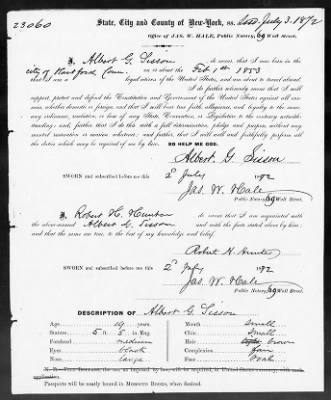 23060
State, City and County of New-York, ss. Issd. July 3. 1872
Office of JAS. W. HALE, Public Notary, 69 Wall Street.
I, Albert G. Sisson do swear that I was born in the
city of Hartford, Conn. on or about the Feb. 1st 1853
that I am a legislations of the United States, and am about to travel abroad.
And I do further solemnly swear that I will
support, protect and defend the Constitution and Government of the United States against all ene-
mies, whether domestic or foreign, and that I will bear true faith, allegiance, and loyalty to the same,
any ordinance, resolution, or law of any State, Convention, or Legislature to the contrary notwith-
standing; and, further, that I do this with a full determination, pledge and purpose, without any
mental reservation or evasion whatever; and further, that I will well and faithfully perform all
the duties which may be required of me by law. SO HELP ME GOD.
Albert G Sisson
SWORN and subscribed before me this 2d July 1872
Jas. W. Hale
Public Notary, 69 Wall Street.
I, Robert H. Hunter do swear that I am acquainted with
the above-named Albert G. Sisson and with the facts stated above by him:
and that the same are true, to the best of my knowledge and belief.
Robert H. Hunter
SWORN and subscribed before me this 2d July 1872
Jas. W. Hale
Public Notary, 69 Wall Street.
DESCRIPTION OF Albert G. Sisson
Age 19 years Mouth small
Stature 5 ft. 5 in. Eng. Chin small
Forehead medium Hair brown
Eyes black Complexion fair
Nose large Face oval
Passports will be neatly bound in Morocco Books, when desired.